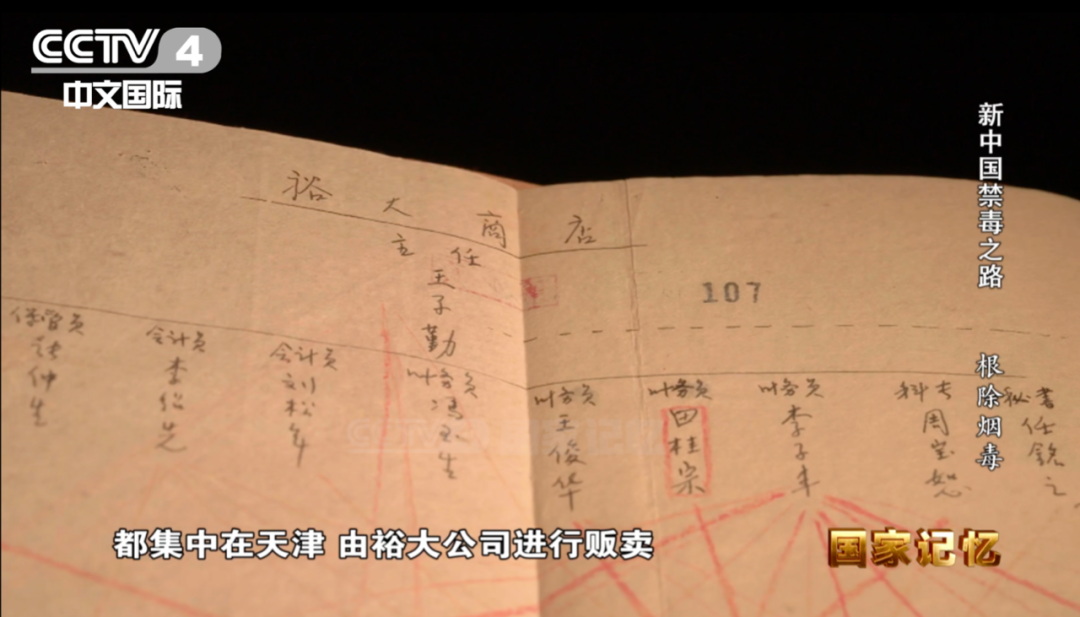 CCTV 4
中文国际
新中国禁毒之路 根除烟毒
裕大商店
主任
王子勤
107
保管员
会计员
会计员 刘松年
财务员
财务员 王俊华
财务员 田桂宗
财务员 李子丰
科长 周宝恕
秘书 任铭之
都集中在天津 由裕大公司进行贩卖
国家记忆